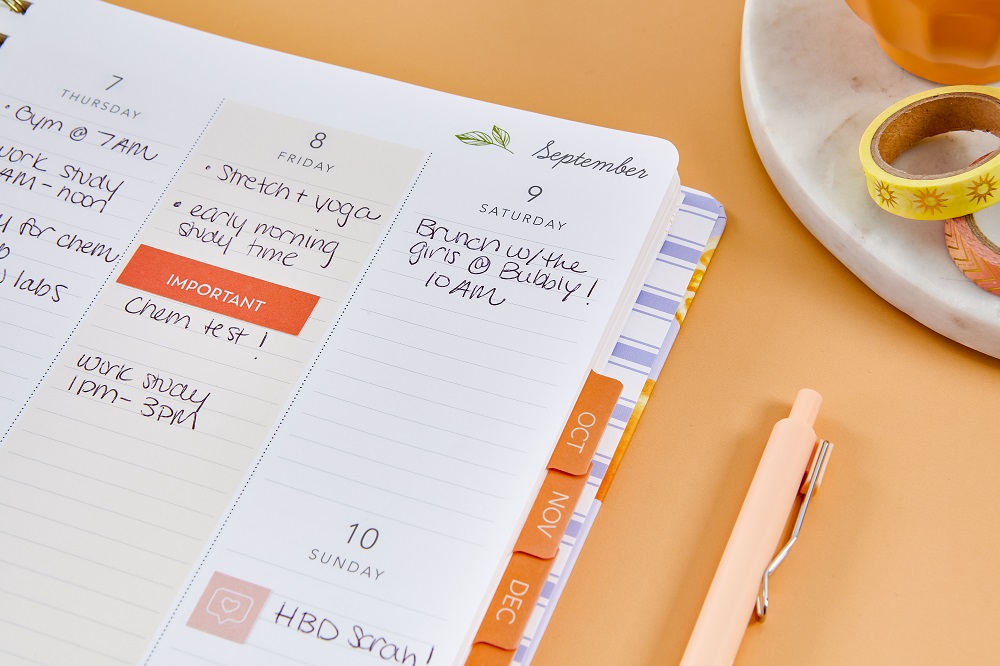 7
THURSDAY
• Gym @ 7AM
work study
AM - noon
for chem
labs
8
FRIDAY
• Stretch + yoga
• early morning
study time
IMPORTANT
Chem test!
work study
1pm - 3PM
September
9
SATURDAY
Brunch w/ the
girls @ Bubbly!
10 AM
10
SUNDAY
HBD Sarah!
OCT
NOV
DEC